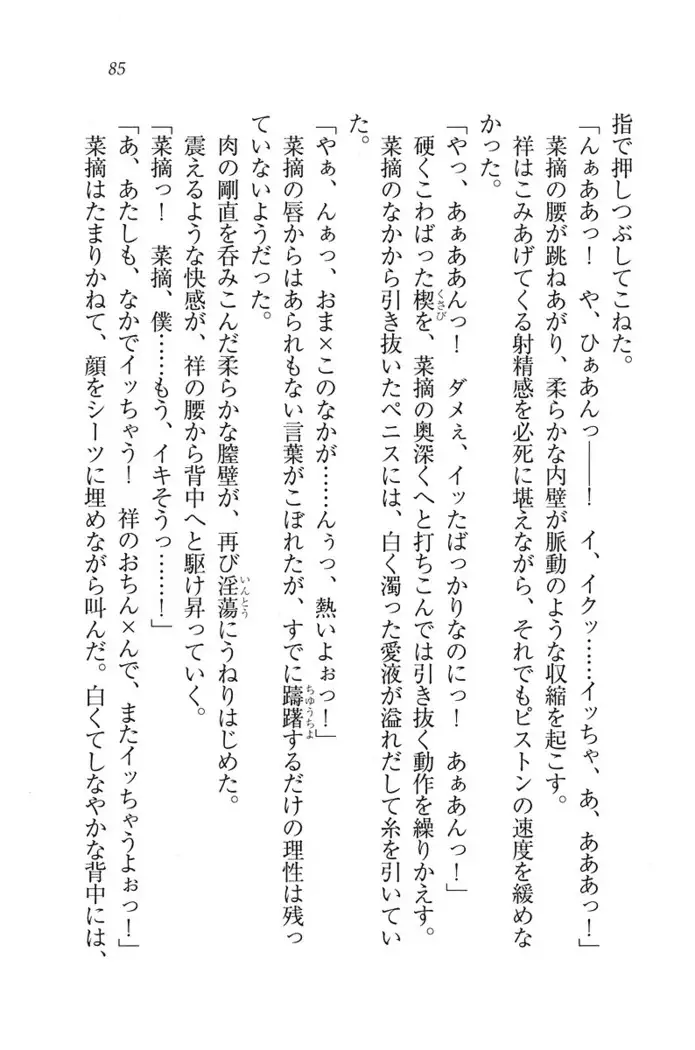 85
指で押しつぶしてこねた。
「んぁああっ！　や、ひぁあんっ――！　イ、イクッ……イッちゃ、あ、あああっ！」
菜摘の腰が跳ねあがり、柔らかな内壁が脈動のような収縮を起こす。
祥はこみあげてくる射精感を必死に堪えながら、それでもピストンの速度を緩めな
かった。
「やっ、あぁああんっ！　ダメぇ、イッたばっかりなのにっ！　あぁあんっ！」
硬くこわばった楔を、菜摘の奥深くへと打ちこんでは引き抜く動作を繰りかえす。
くさび
菜摘のなかから引き抜いたペニスには、白く濁った愛液が溢れだして糸を引いてい
た。
「やぁ、んぁっ、おま×このなかが……んぅっ、熱いよぉっ！」
菜摘の唇からはあられもない言葉がこぼれたが、すでに躊躇するだけの理性は残っ
ちゅうちょ
ていないようだった。
肉の剛直を呑みこんだ柔らかな膣壁が、再び淫蕩にうねりはじめた。
いんとう
震えるような快感が、祥の腰から背中へと駆け昇っていく。
「菜摘っ！　菜摘、僕……もう、イキそうっ……！」
「あ、あたしも、なかでイッちゃう！　祥のおちん×んで、またイッちゃうよぉっ！」
菜摘はたまりかねて、顔をシーツに埋めながら叫んだ。白くてしなやかな背中には、